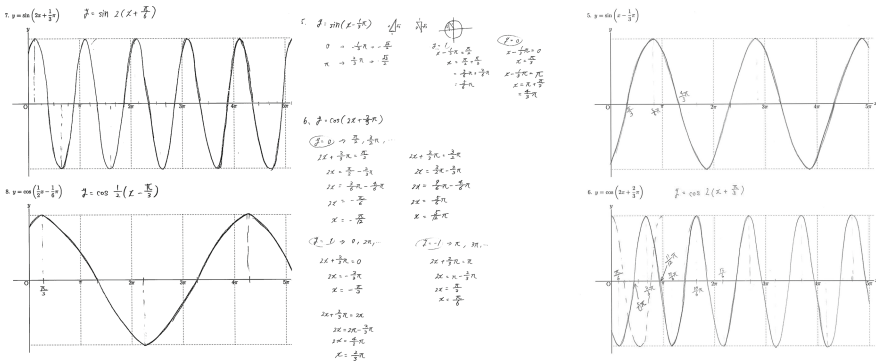 7. y = sin(2x + π/3)  y = sin 2(x + π/6)
y
O π 2π 3π 4π 5π x
8. y = cos(1/2 x − 1/6 π)  y = cos 1/2 (x − π/3)
y
O π/3 π 2π 3π 4π 5π
5. y = sin(x − 1/3 π)
0 → −1/3 π = −
π → 2/3 π →
y = 1
x − 1/3 π = π/2
x = π/2 + π/3
= 3/6 π + 2/6 π
= 5/6 π
y = 0
x − 1/3 π = 0
x = π/3
x − 1/3 π = π
x = π + π/3
= 4/3 π
6. y = cos(2x + 2/3 π)
y = 0 → π/2, 3/2 π, ...
2x + 2/3 π = π/2
2x = π/2 − 2/3 π
2x = 3/6 π − 4/6 π
2x = −π/6
x = −π/12
2x + 2/3 π = 3/2 π
2x = 3/2 π − 2/3 π
2x = 9/6 π − 4/6 π
2x = 5/6 π
x = 5/12 π
y = 1 → 0, 2π, ...
2x + 2/3 π = 0
2x = −2/3 π
x = −π/3
2x + 2/3 π = 2π
2x = 2π − 2/3 π
2x = 4/3 π
x = 2/3 π
y = −1 → π, 3π, ...
2x + 2/3 π = π
2x = π − 2/3 π
2x = π/3
x = π/6
5. y = sin(x − 1/3 π)
y
O π/3 π 4π/3 2π 3π 4π 5π x
6. y = cos(2x + 2/3 π)  y = cos 2(x + π/3)
y
O π 2π 3π 4π 5π x